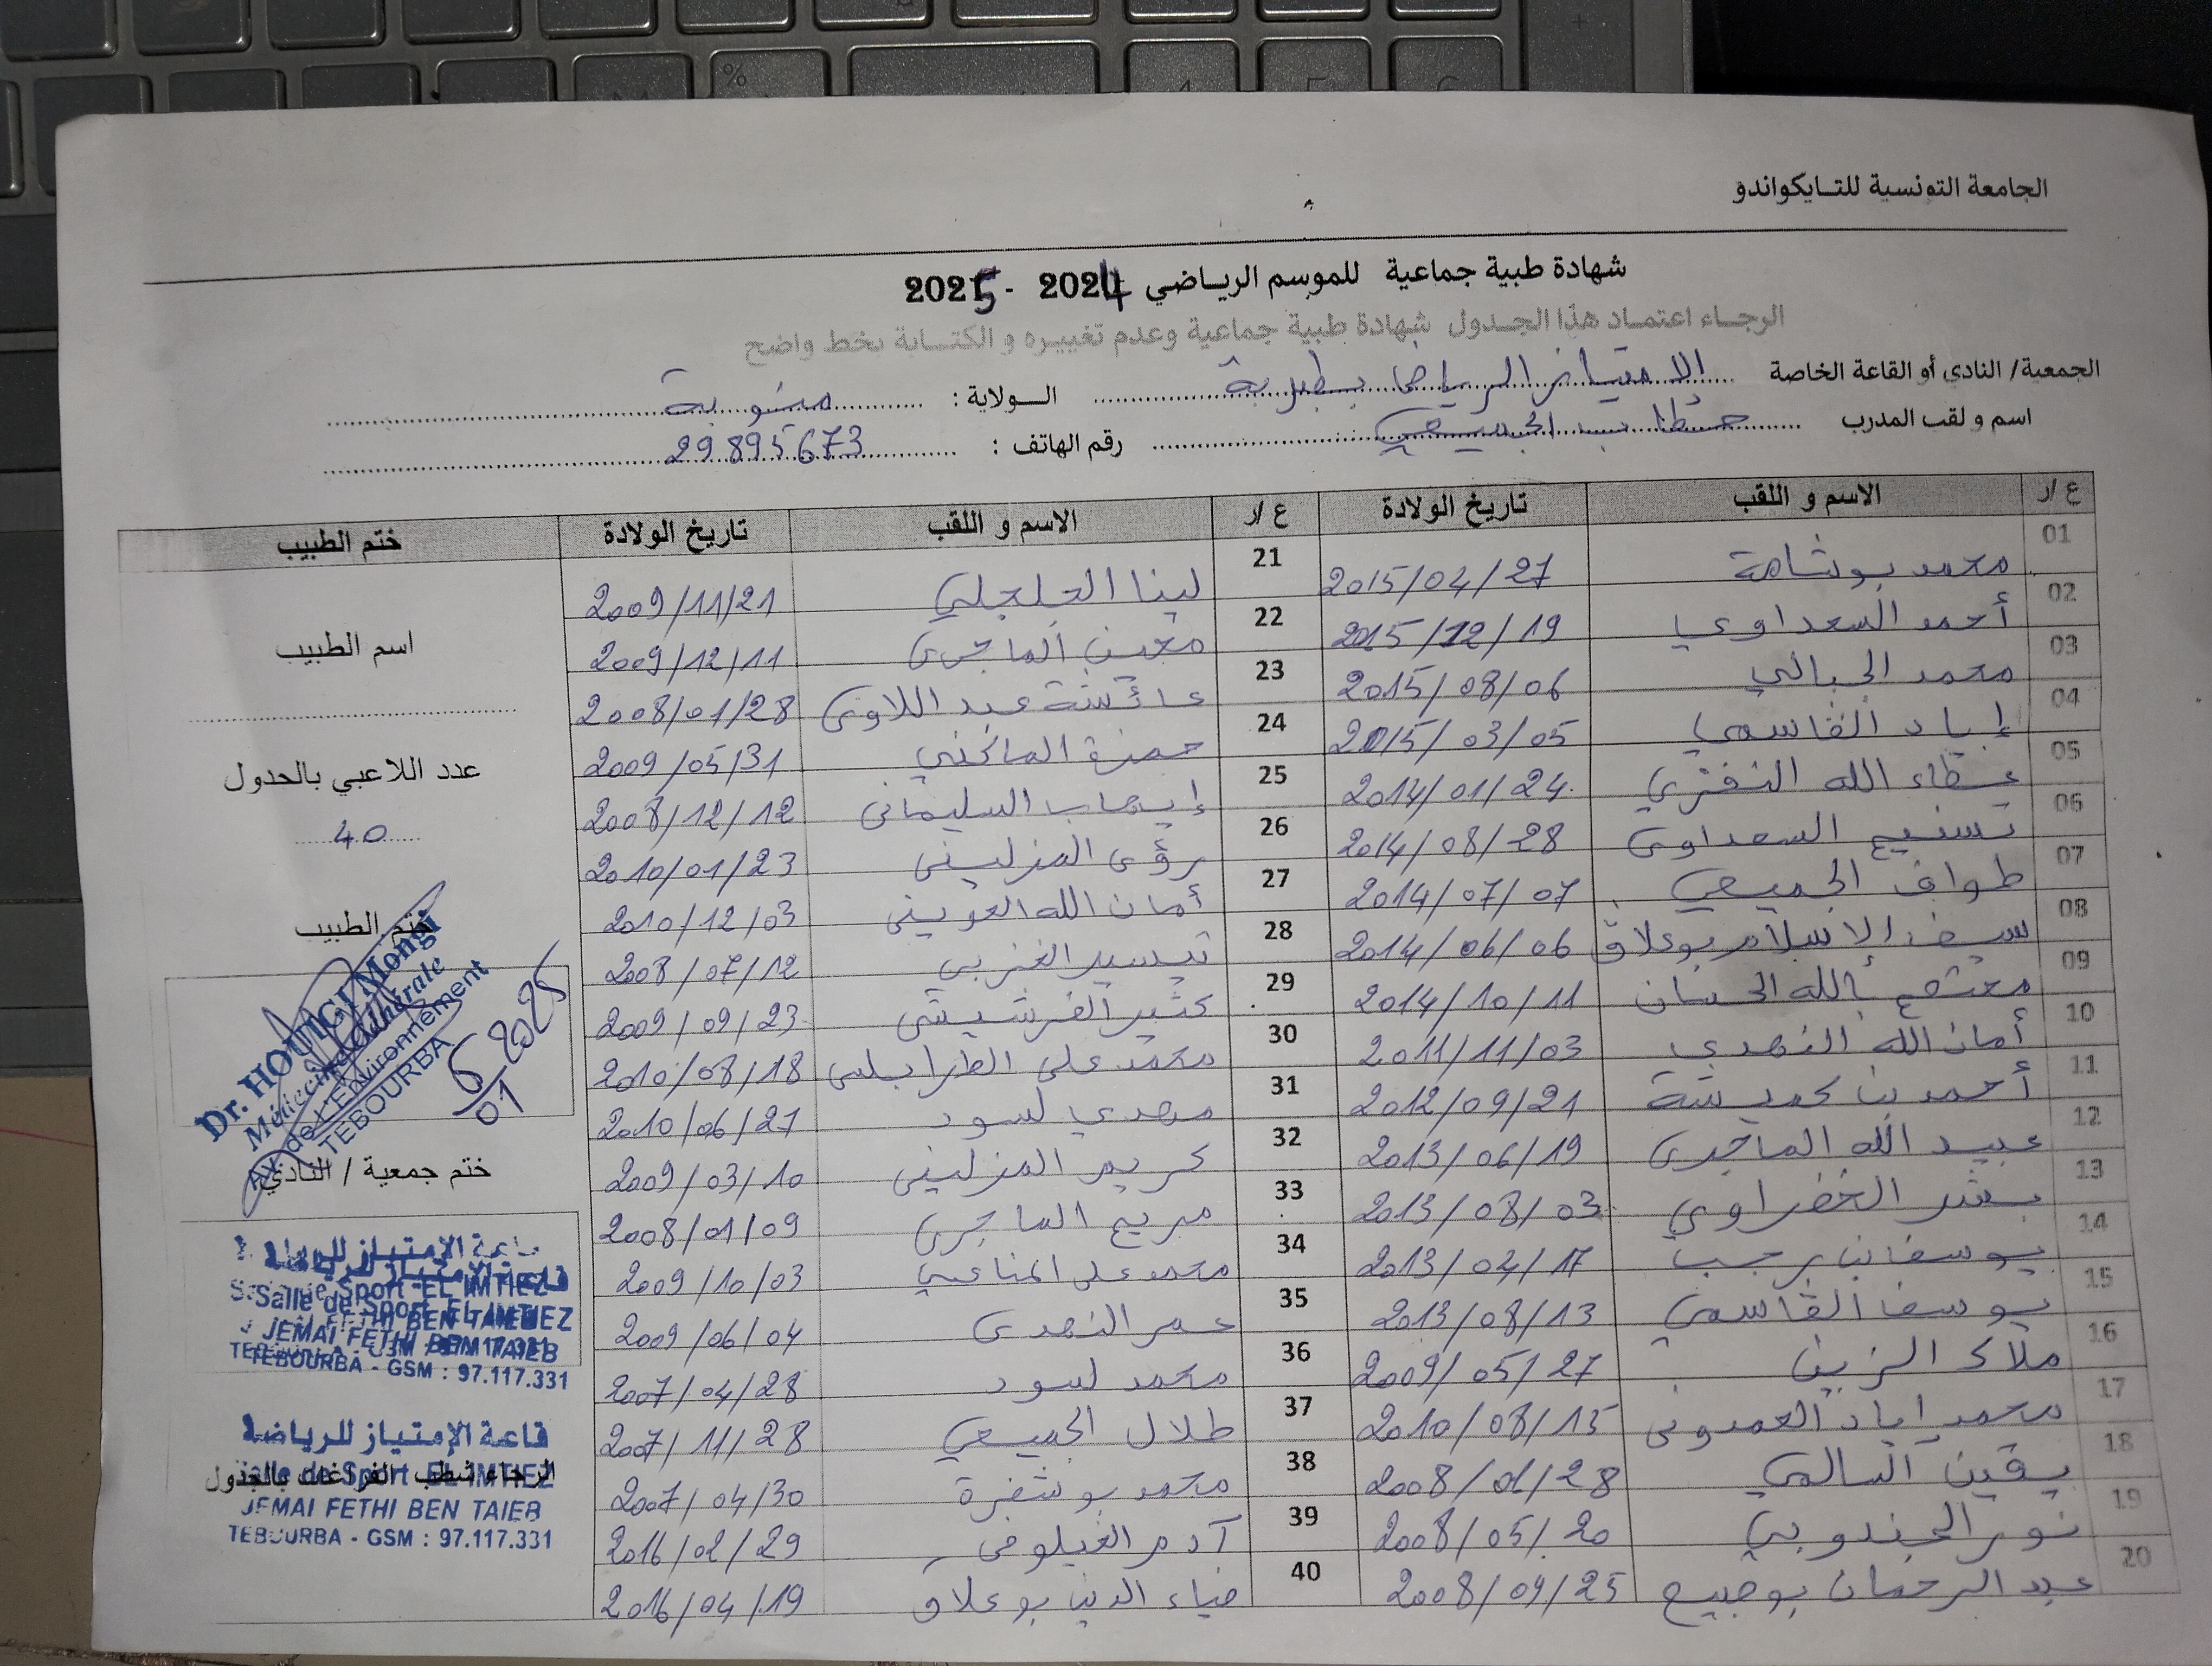 الجامعة التونسية للتايكواندو
شهادة طبية جماعية للموسم الرياضي 2024 - 2025
الرجاء اعتماد هذا الجدول شهادة طبية جماعية وعدم تغييره و الكتابة بخط واضح
الجمعية/ النادي أو القاعة الخاصة الامتياز الرياضي بطبربة الولاية : منوبة
اسم و لقب المدرب حطاب الجميعي رقم الهاتف : 29895673
ع /ر الاسم و اللقب تاريخ الولادة ع /ر الاسم و اللقب تاريخ الولادة ختم الطبيب
01 محمد بوشامة 2015/04/27 21 لينا الجلجلي 2009/11/21
02 أحمد السعداوي 2015/12/19 22 معين الماجري 2009/12/11
03 محمد الجبالي 2015/08/06 23 عائشة عبد اللاوي 2008/01/28
04 إياد القاسمي 2015/03/05 24 حمزة الماكني 2009/05/31
05 عطاء الله النفزي 2014/01/24 25 إيهاب السليماني 2008/12/12
06 تسنيم السعداوي 2014/08/28 26 رؤى المزليني 2010/01/23
07 طواف الجميعي 2014/07/07 27 أمان الله العويني 2010/12/03
08 سيف الإسلام بوعلاق 2014/06/06 28 تيسير الغزبي 2008/07/12
09 معتصم بالله الحسان 2014/10/11 29 كثير الفرشيشي 2009/09/23
10 أمان الله النهدي 2011/11/03 30 محمد علي الطرابلسي 2010/08/18
11 أحمد بن كميشة 2012/09/21 31 مهدي لسود 2010/06/27
12 عبيد الله الماجري 2013/06/19 32 كريم المزليني 2009/03/10
13 بشر الخضراوي 2013/08/03 33 مريم الماجري 2008/01/09
14 يوسف بن رجب 2013/04/17 34 محمد علي المناعي 2009/10/03
15 يوسف القاسمي 2013/08/13 35 عمر النهدي 2009/06/04
16 ملاك الزين 2009/05/27 36 محمد لسود 2007/04/28
17 محمد اياد العمدوني 2010/08/15 37 طلال الجميعي 2007/11/28
18 يقين السالمي 2008/01/28 38 محمد بوشفرة 2007/04/30
19 نور الجندوبي 2008/05/20 39 آدم الغيلوفي 2016/02/29
20 عبد الرحمان بوجبيح 2008/09/25 40 ضياء الدين بوعلاق 2016/04/19
اسم الطبيب
عدد اللاعبي بالجدول
40
ختم الطبيب
Dr. HOUIGI Mongi
Médecine Générale
Av. de L'Environement
TEBOURBA
6/01 2025
ختم جمعية / النادي
قاعة الإمتياز للرياضة
Salle de Sport EL IMTIEZ
JEMAI FETHI BEN TAIEB
TEBOURBA - GSM : 97.117.331
قاعة الإمتياز للرياضة
Salle de Sport EL IMTIEZ
الرجاء شطب الفراغات بالجدول
JEMAI FETHI BEN TAIEB
TEBOURBA - GSM : 97.117.331